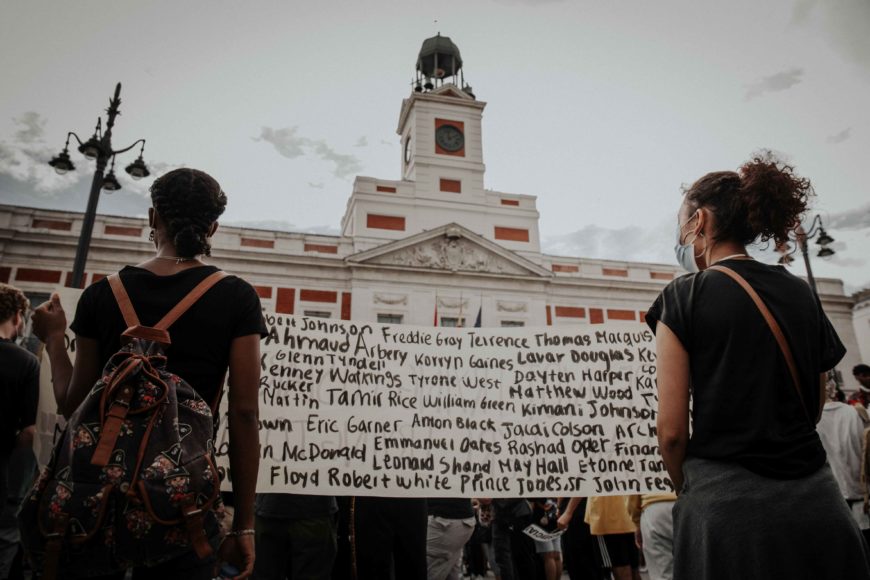 Johnson Freddie Gray Terrence Thomas Marquis
Ahmaud Arbery Korryn Gaines Lavar Douglas
Glenn Tyndell
Kenney Watkings Tyrone West Dayten Harper
Rucker Matthew Wood
Martin Tamir Rice William Green Kimani Johnson
Eric Garner Anton Black Jacai Colson
McDonald Emmanuel Oates Rashad Oper
Leonard Shand May Hall Etonne
Floyd Robert White Prince Jones.Jr John